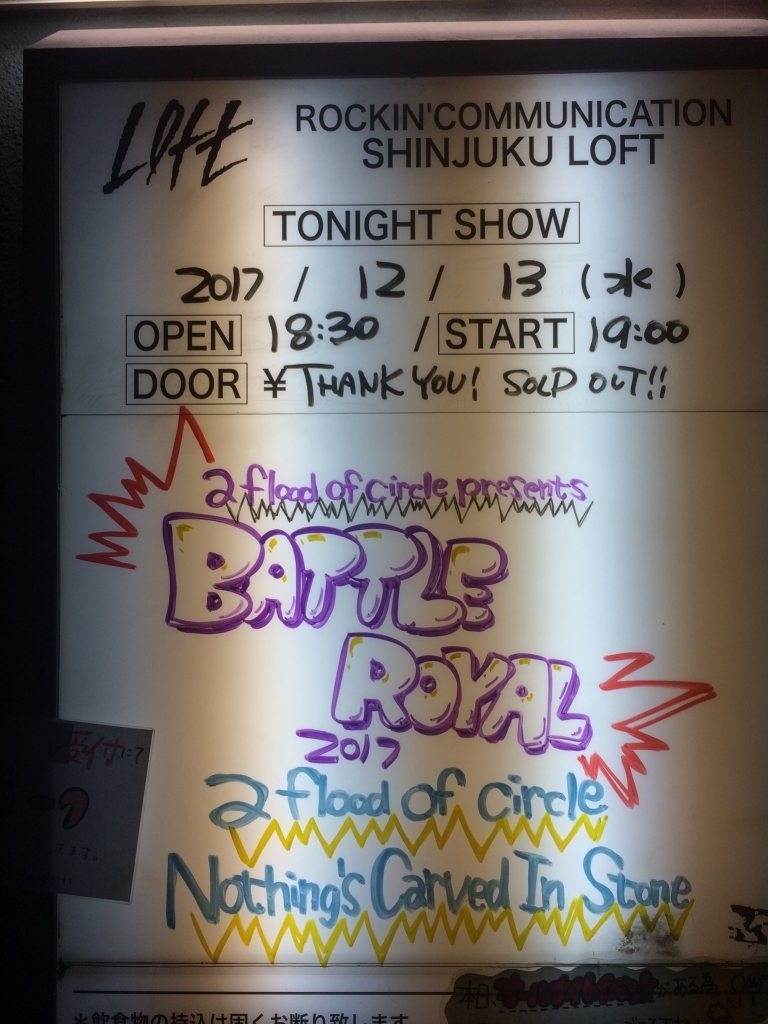 LOFT
ROCKIN'COMMUNICATION
SHINJUKU LOFT
TONIGHT SHOW
2017 / 12 / 13 (水)
OPEN 18:30 / START 19:00
DOOR ¥THANK YOU! SOLD OUT!!
a flood of circle presents
BATTLE
ROYAL
2017
a flood of circle
Nothing's Carved In Stone
受付にて
ます。
*飲食物の持込は固くお断り致します